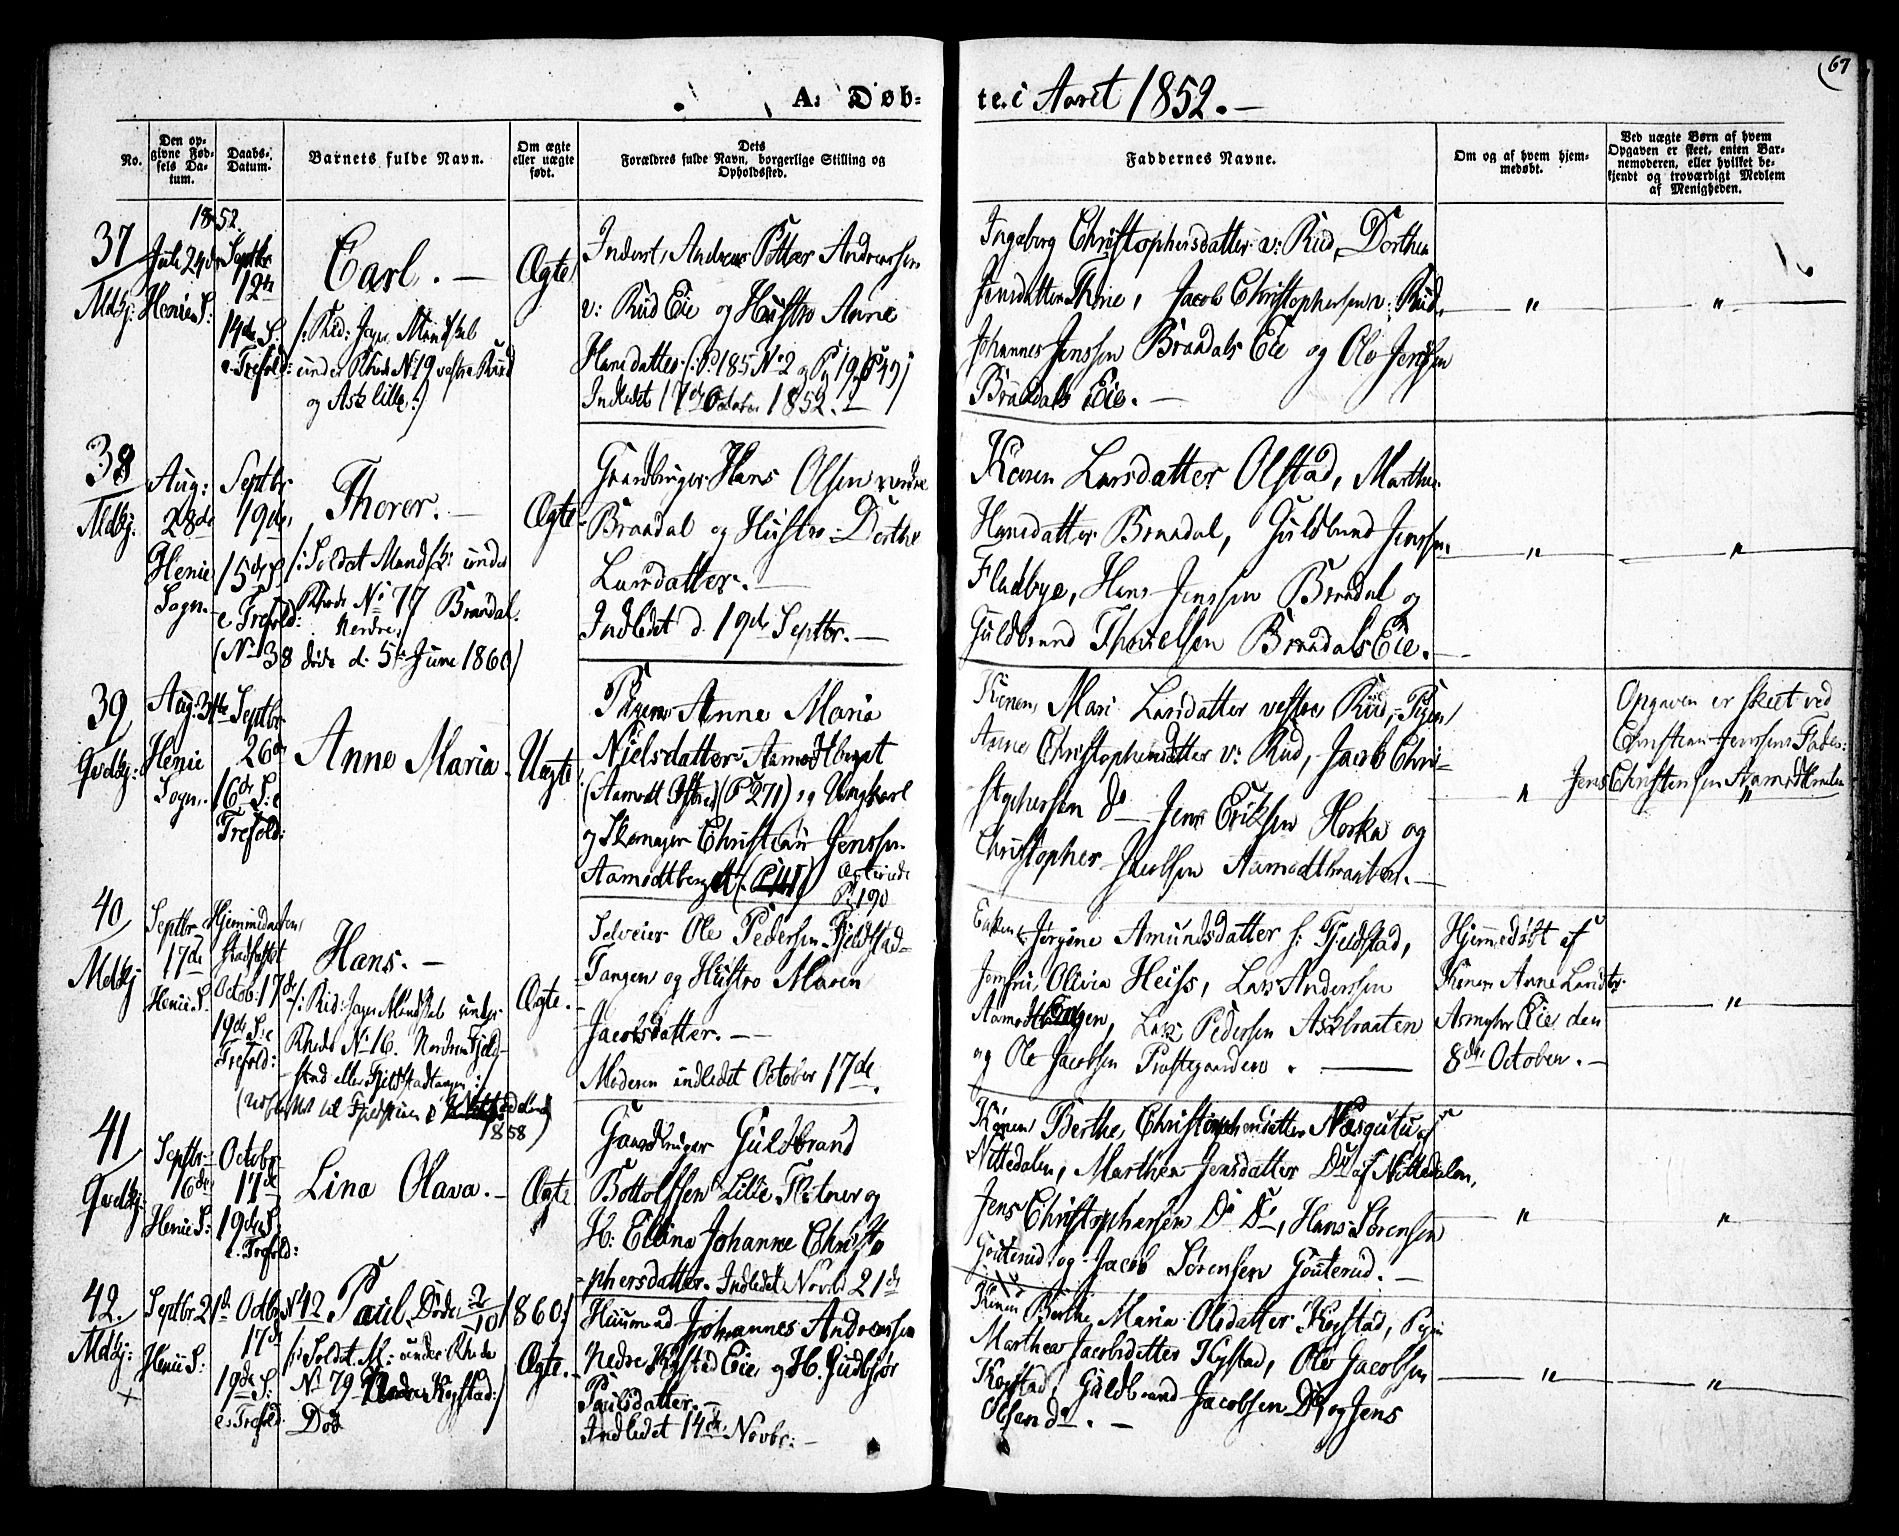 67
A: Døb-
te. i Aaret 1852. —
No.
Den op-
givne Fød-
sels Da-
tum.
Daabs-
Datum.
Barnets fulde Navn.
Om ægte
eller uægte
født.
Dets
Forældres fulde Navn, borgerlige Stilling og
Opholdssted.
Faddernes Navne.
Om og af hvem hjem-
medøbt.
Ved uægte Børn af hvem
Opgaven er skeet, enten Bar-
nemoderen, eller hvilket be-
kjendt og troværdigt Medlem
af Menigheden.
1852.
37
Mdkj:
Juli 24de
Henie S:
Septbr
12te
14de S:
e. Trefold:
Carl. —
under Rhode No 19 vestre Rud
og Ask lille :)
Ægte
Inderst, Andreas Petter Andreassen
v: Rud Eie og Hustro Anne
Hansdatter
Indledet 17de October 1852. —
Ingeborg Christophersdatter v: Rud, Dorthea
Jensdatter, Jacob Christophersen v: Rud,
Johannes Jenssen Braadals Eie og Ole Jenssen
Braadals Eie. —
"
"
38
Mdkj.
Aug:
28de
Henie
Sogn.
Septbr
19de,
15de S
e Trefold:
Thorer. —
/: Soldat Mandsk: under
Rhode No 77 Braadal.
Nerdre
(No 38 døde d: 5te June 1860)
Ægte
Gaardbruger Hans Olsen nerdre
Braadal og Hustro Dorthe
Larsdatter. —
Indledet d. 19de Septbr. —
Karen Larsdatter Olstad, Marthe
Hansdatter Braadal, Guldbrand Jenssen
Fladbye, Hans Jenssen Braadal og
Guldbrand Braadals Eie. —
"
"
39
Qvdkj:
Aug: 31te
Henie
Sogn.
Septbr
26de
16de S: e
Trefold:
Anne Maria.
Uægte
Pigen Anne Maria
Nielsdatter Aamodtberget
(P 271) og Ungkarl
og Skomager Christian Jenssen
Aamodtberget
P 190
Konen Mari Larsdatter vestre Rud, Pigen
Anne Christophersdatter v: Rud, Jacob Chri-
stophersen Do Jens Eriksen Horka og
Christopher Jacobsen Aamodtbraaten. —
"
Opgaven er skeet ved
Christian Jenssens Fader:
Jens Christensen
"
40
Mdkj
Septbr
17de
Henie S.
Hjemmedaaben
stadfæstet
Octob: 17de
19de S: e
Trefold:
Hans. —
Rhode No 16. Nordre Fjeld-
stad eller Fjeldstadtangen :/
1858)
Ægte.
Selveier Ole Pedersen Fjeldstad-
Tangen og Hustro Maren
Jacobsdatter. —
Moderen indledet October 17de.
Enken Jørgine Amundsdatter s: Fjeldstad,
Jomfru Olivia Heiss, Lars Anderssen
Aamodtengen, Lars Pedersen Askbraaten
og Ole Jacobsen Præstegaarden. —
Hjemmedøbt af
Konen Anne Larsdtr.
Asmyhr Eie den
8de October. —
"
41
Qvdkj:
Septbr
16de
Henie S:
Octobr
17de
19de S:
e. Trefold:
Lina Olava. —
Ægte
Gaardbruger Guldbrand
Bottolfsen Lille Flotner og
H: Ellina Johanne Christo-
phersdatter. Indledet Novbr 21de
Konen Berthe Christophersdatter af
Nittedalen, Marthea Jensdatter Do af Nittedalen,
Jens Christophersen Do Do, Hans Sørensen
Gouterud og Jacob Sørensen Gouterud. —
"
"
42.
Mdkj:
+
Septbr 21de
Henie S:
Octbr
17de
19de S:
e: Trefold
No 42 Paul. Døde 2/10 1860.)
/: Soldat. M: under Rhode
No 79 Nedre Kogstad:)
Død
Ægte.
Huusmand Johannes Andreassen
Nedre Kogstad Eie og H. Gudbjør
Paulsdatter. —
Indledet 14de Novbr: —
Konen Berthe Maria Olsdatter Kogstad, Pigen
Marthea Jacobsdatter Kogstad, Ole Jacobsen
Kogstad, Guldbrand Jacobsen Do, og Jens
Olsen Do. —
"
"